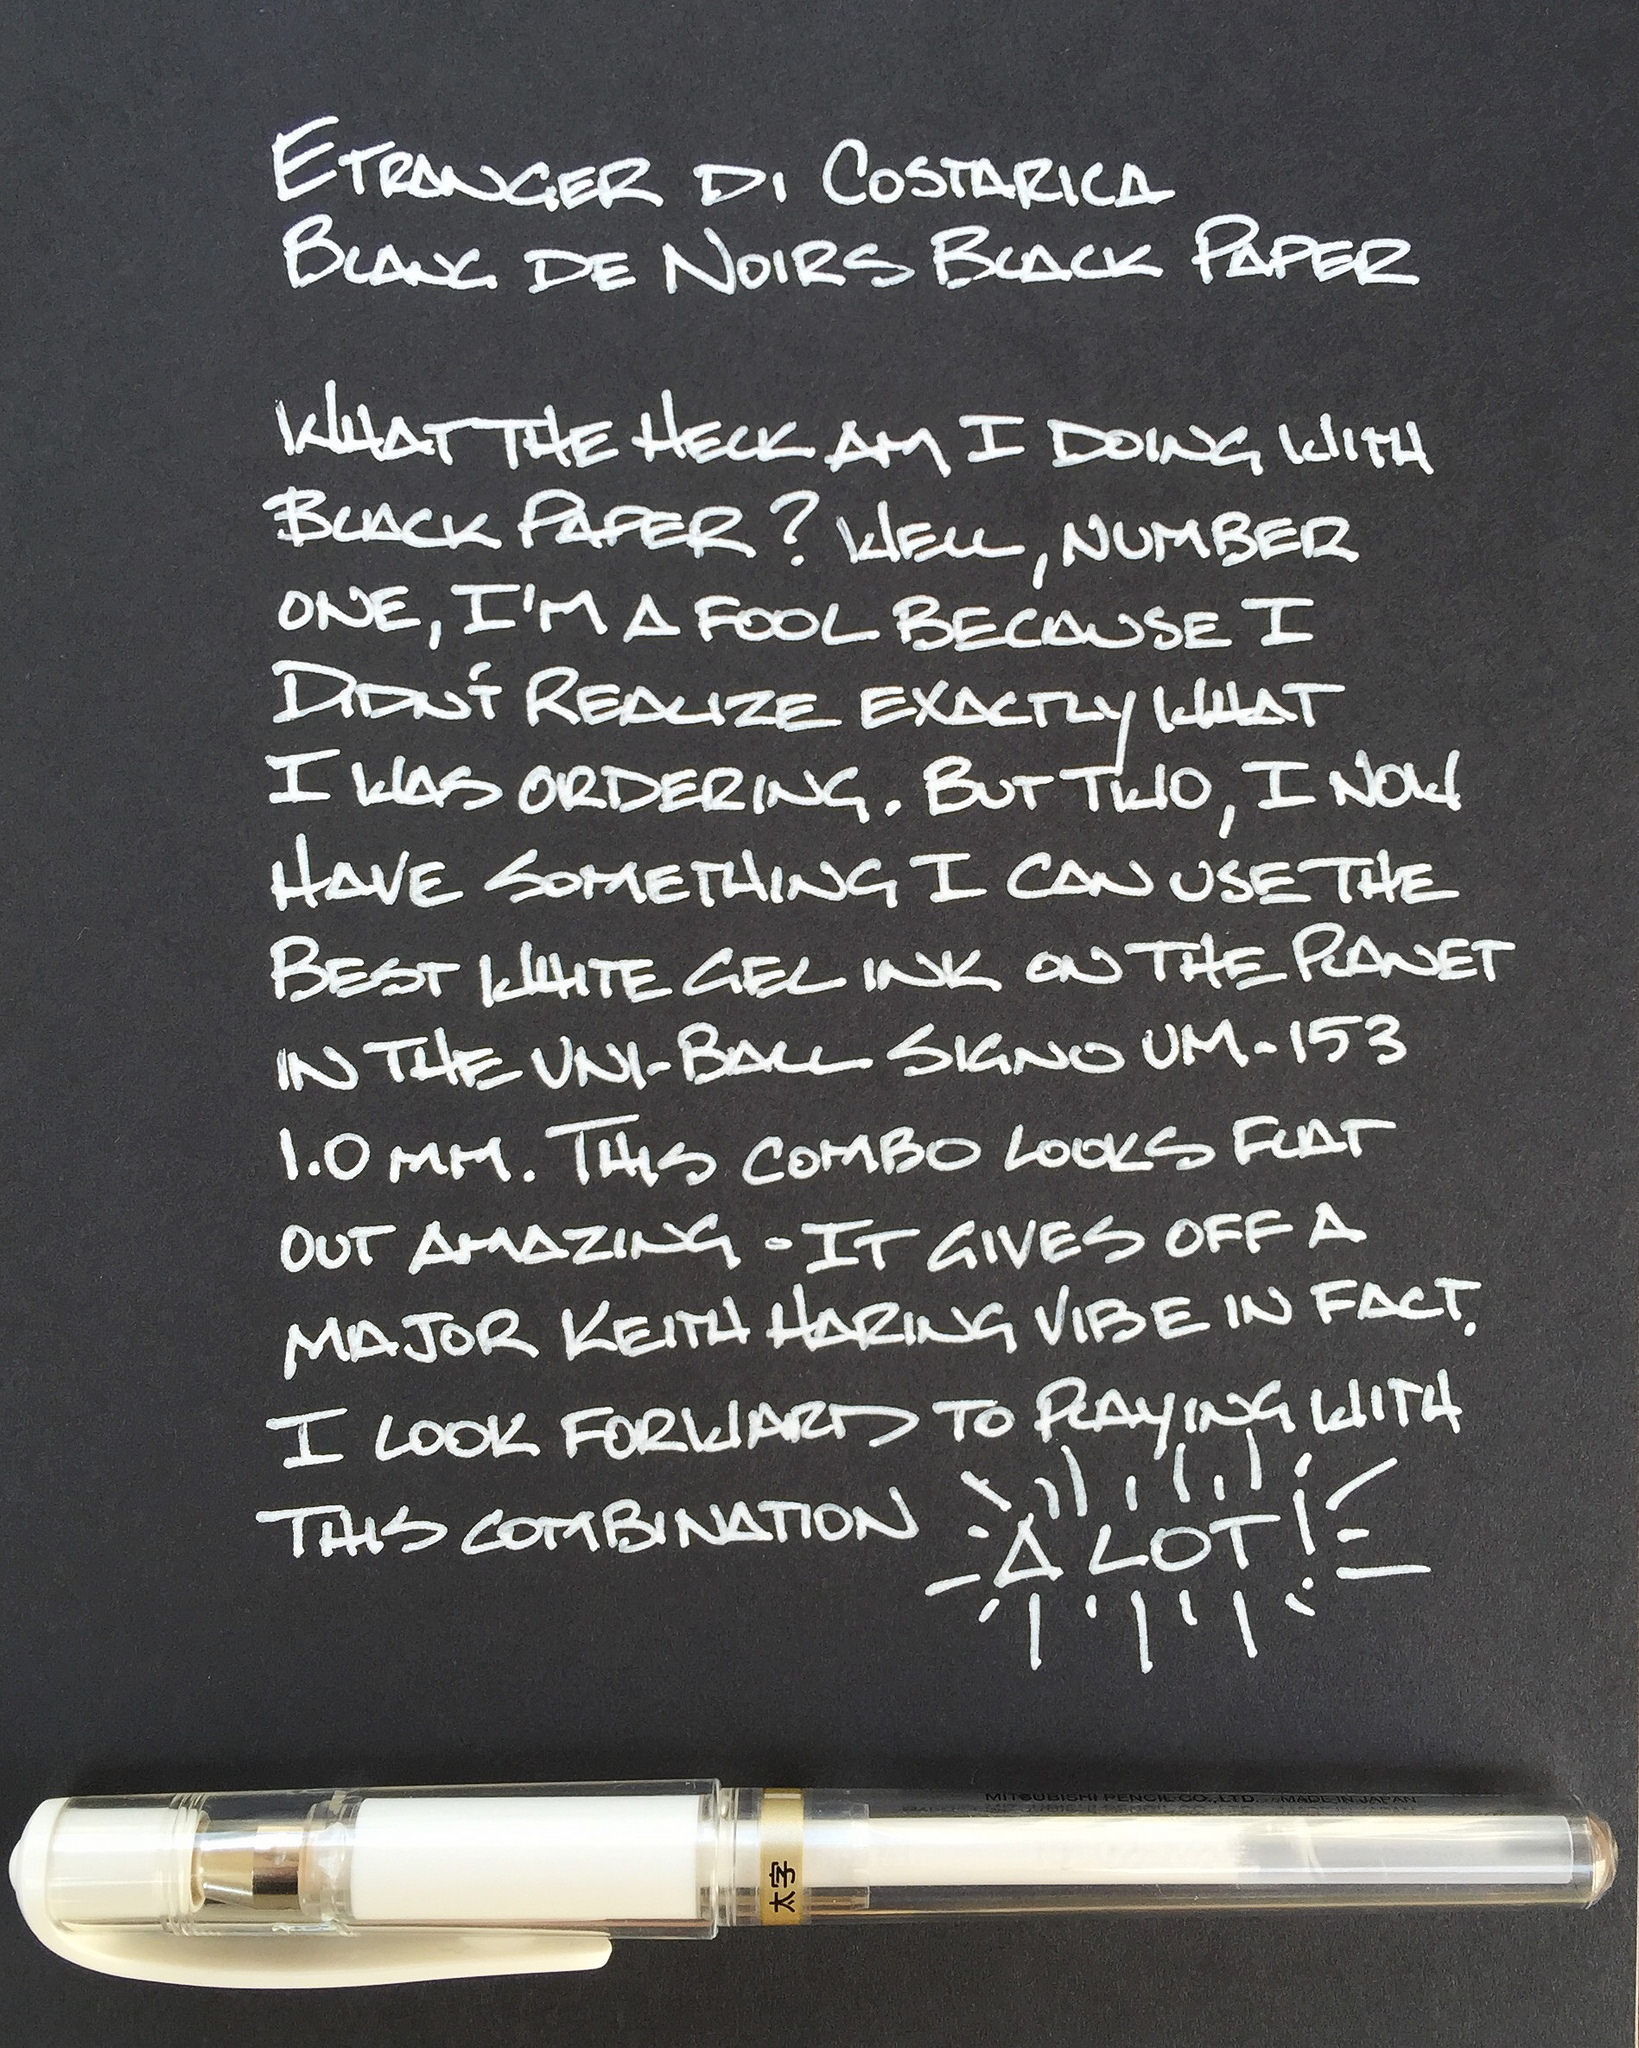 ETRANGER DI COSTARICA
BLANC DE NOIRS BLACK PAPER
WHAT THE HECK AM I DOING WITH
BLACK PAPER? WELL, NUMBER
ONE, I'M A FOOL BECAUSE I
DIDN'T REALIZE EXACTLY WHAT
I WAS ORDERING. BUT TWO, I NOW
HAVE SOMETHING I CAN USE THE
BEST WHITE GEL INK ON THE PLANET
IN THE UNI-BALL SIGNO UM-153
1.0 MM. THIS COMBO LOOKS FLAT
OUT AMAZING - IT GIVES OFF A
MAJOR KEITH HARING VIBE IN FACT.
I LOOK FORWARD TO PLAYING WITH
THIS COMBINATION A LOT!
MITSUBISHI PENCIL CO., LTD. MADE IN JAPAN
太字